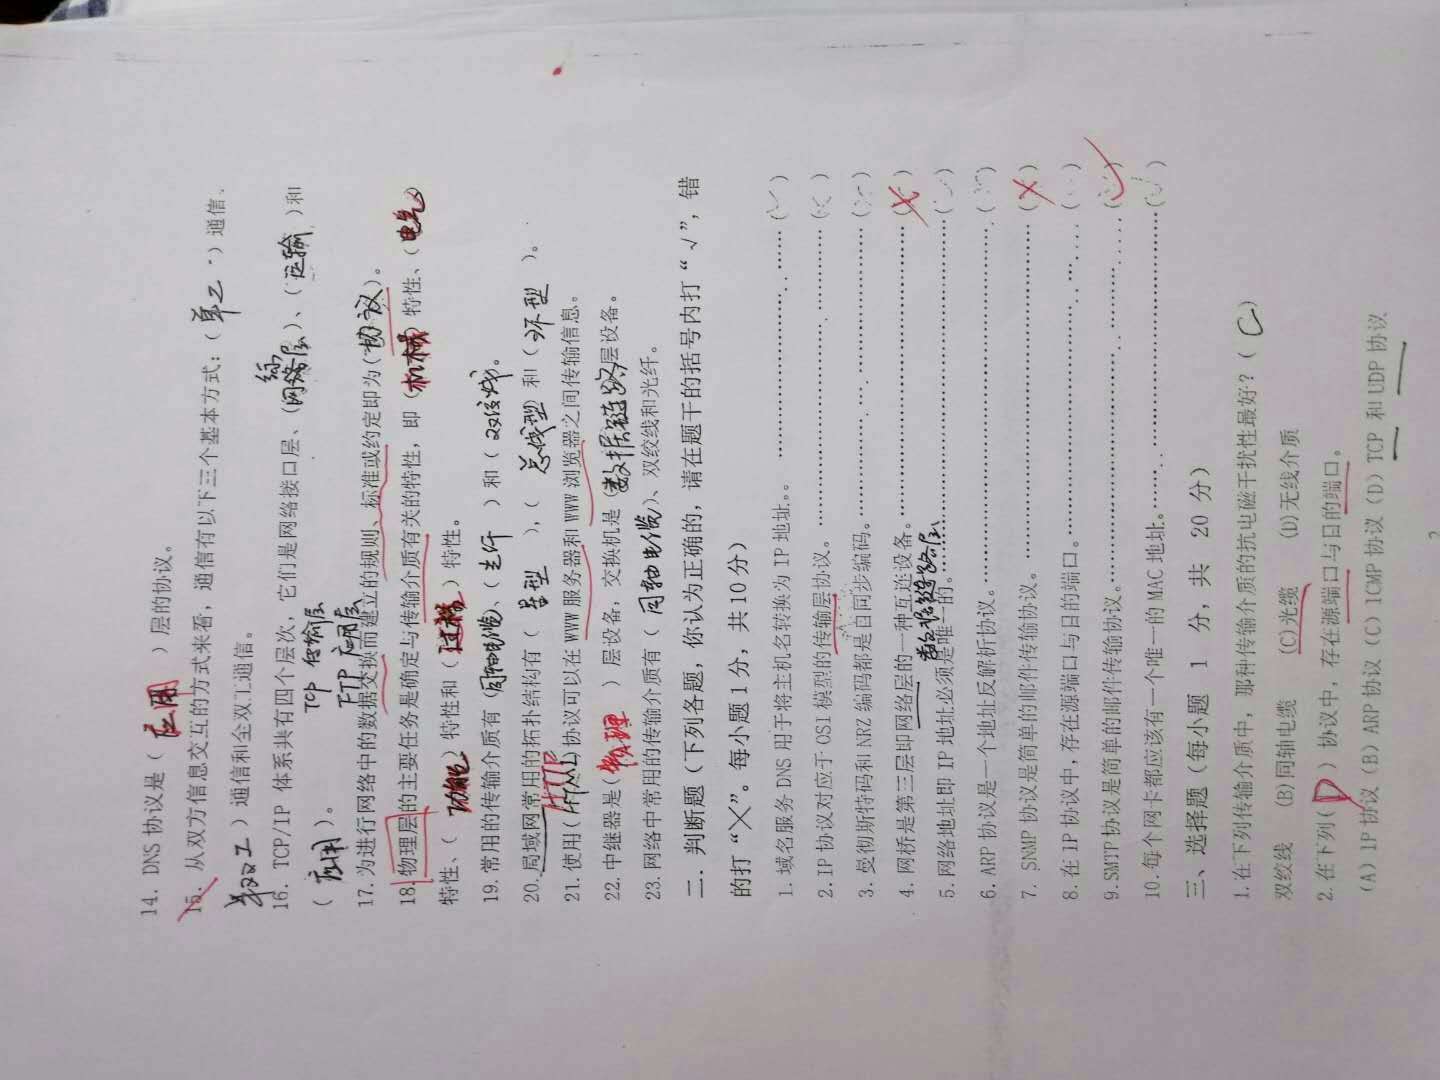 14. DNS 协议是（ 应用 ）层的协议。
15. 从双方信息交互的方式来看，通信有以下三个基本方式：（ 单工 ）通信、
半双工 ）通信和全双工通信。
综
16. TCP/IP 体系共有四个层次，它们是网络接口层、（网络层）、（ 运输 ）和
（ 应用 ）。
TCP 传输层
FTP 应用层
17. 为进行网络中的数据交换而建立的规则、标准或约定即为（协议）。
18. 物理层的主要任务是确定与传输介质有关的特性，即（机械）特性、（电气）
特性、（ 功能 ）特性和（ 过程 ）特性。
19. 常用的传输介质有（同轴电缆）、（ 光纤 ）和（ 双绞线。
20. 局域网常用的拓扑结构有（ 星型 ），（ 总线型 和（ 环型 ）。
HTTP
21. 使用（HTML）协议可以在 WWW 服务器和 WWW 浏览器之间传输信息。
22. 中继器是（ 物理 ）层设备，交换机是（数据链路层设备。
23. 网络中常用的传输介质有（ 同轴电缆）、双绞线和光纤。
二．判断题（下列各题，你认为正确的，请在题干的括号内打“√”，错
的打“╳”。每小题1分，共10分）
1. 域名服务 DNS 用于将主机名转换为 IP 地址。。 ……………………（✓）
2. IP 协议对应于 OSI 模型的传输层协议。……………………（×）
3. 曼彻斯特码和 NRZ 编码都是自同步编码。……………………（ ）
4. 网桥是第三层即网络层的一种互连设备。……………………（×）
数据链路层
5. 网络地址即 IP 地址必须是唯一的。……………………（ ）
6. ARP 协议是一个地址反解析协议。……………………（ ）
7. SNMP 协议是简单的邮件传输协议。……………………（×）
8. 在 IP 协议中，存在源端口与目的端口。……………………（ ）
9. SMTP 协议是简单的邮件传输协议。……………………（✓）
10. 每个网卡都应该有一个唯一的 MAC 地址。……………………（√）
三、选择题（每小题 1 分，共 20 分）
1. 在下列传输介质中，那种传输介质的抗电磁干扰性最好？（ C ）
双绞线 (B)同轴电缆 (C)光缆 (D)无线介质
2. 在下列（ D ）协议中，存在源端口与目的端口。
（A）IP 协议（B）ARP 协议（C）ICMP 协议（D）TCP 和 UDP 协议
2